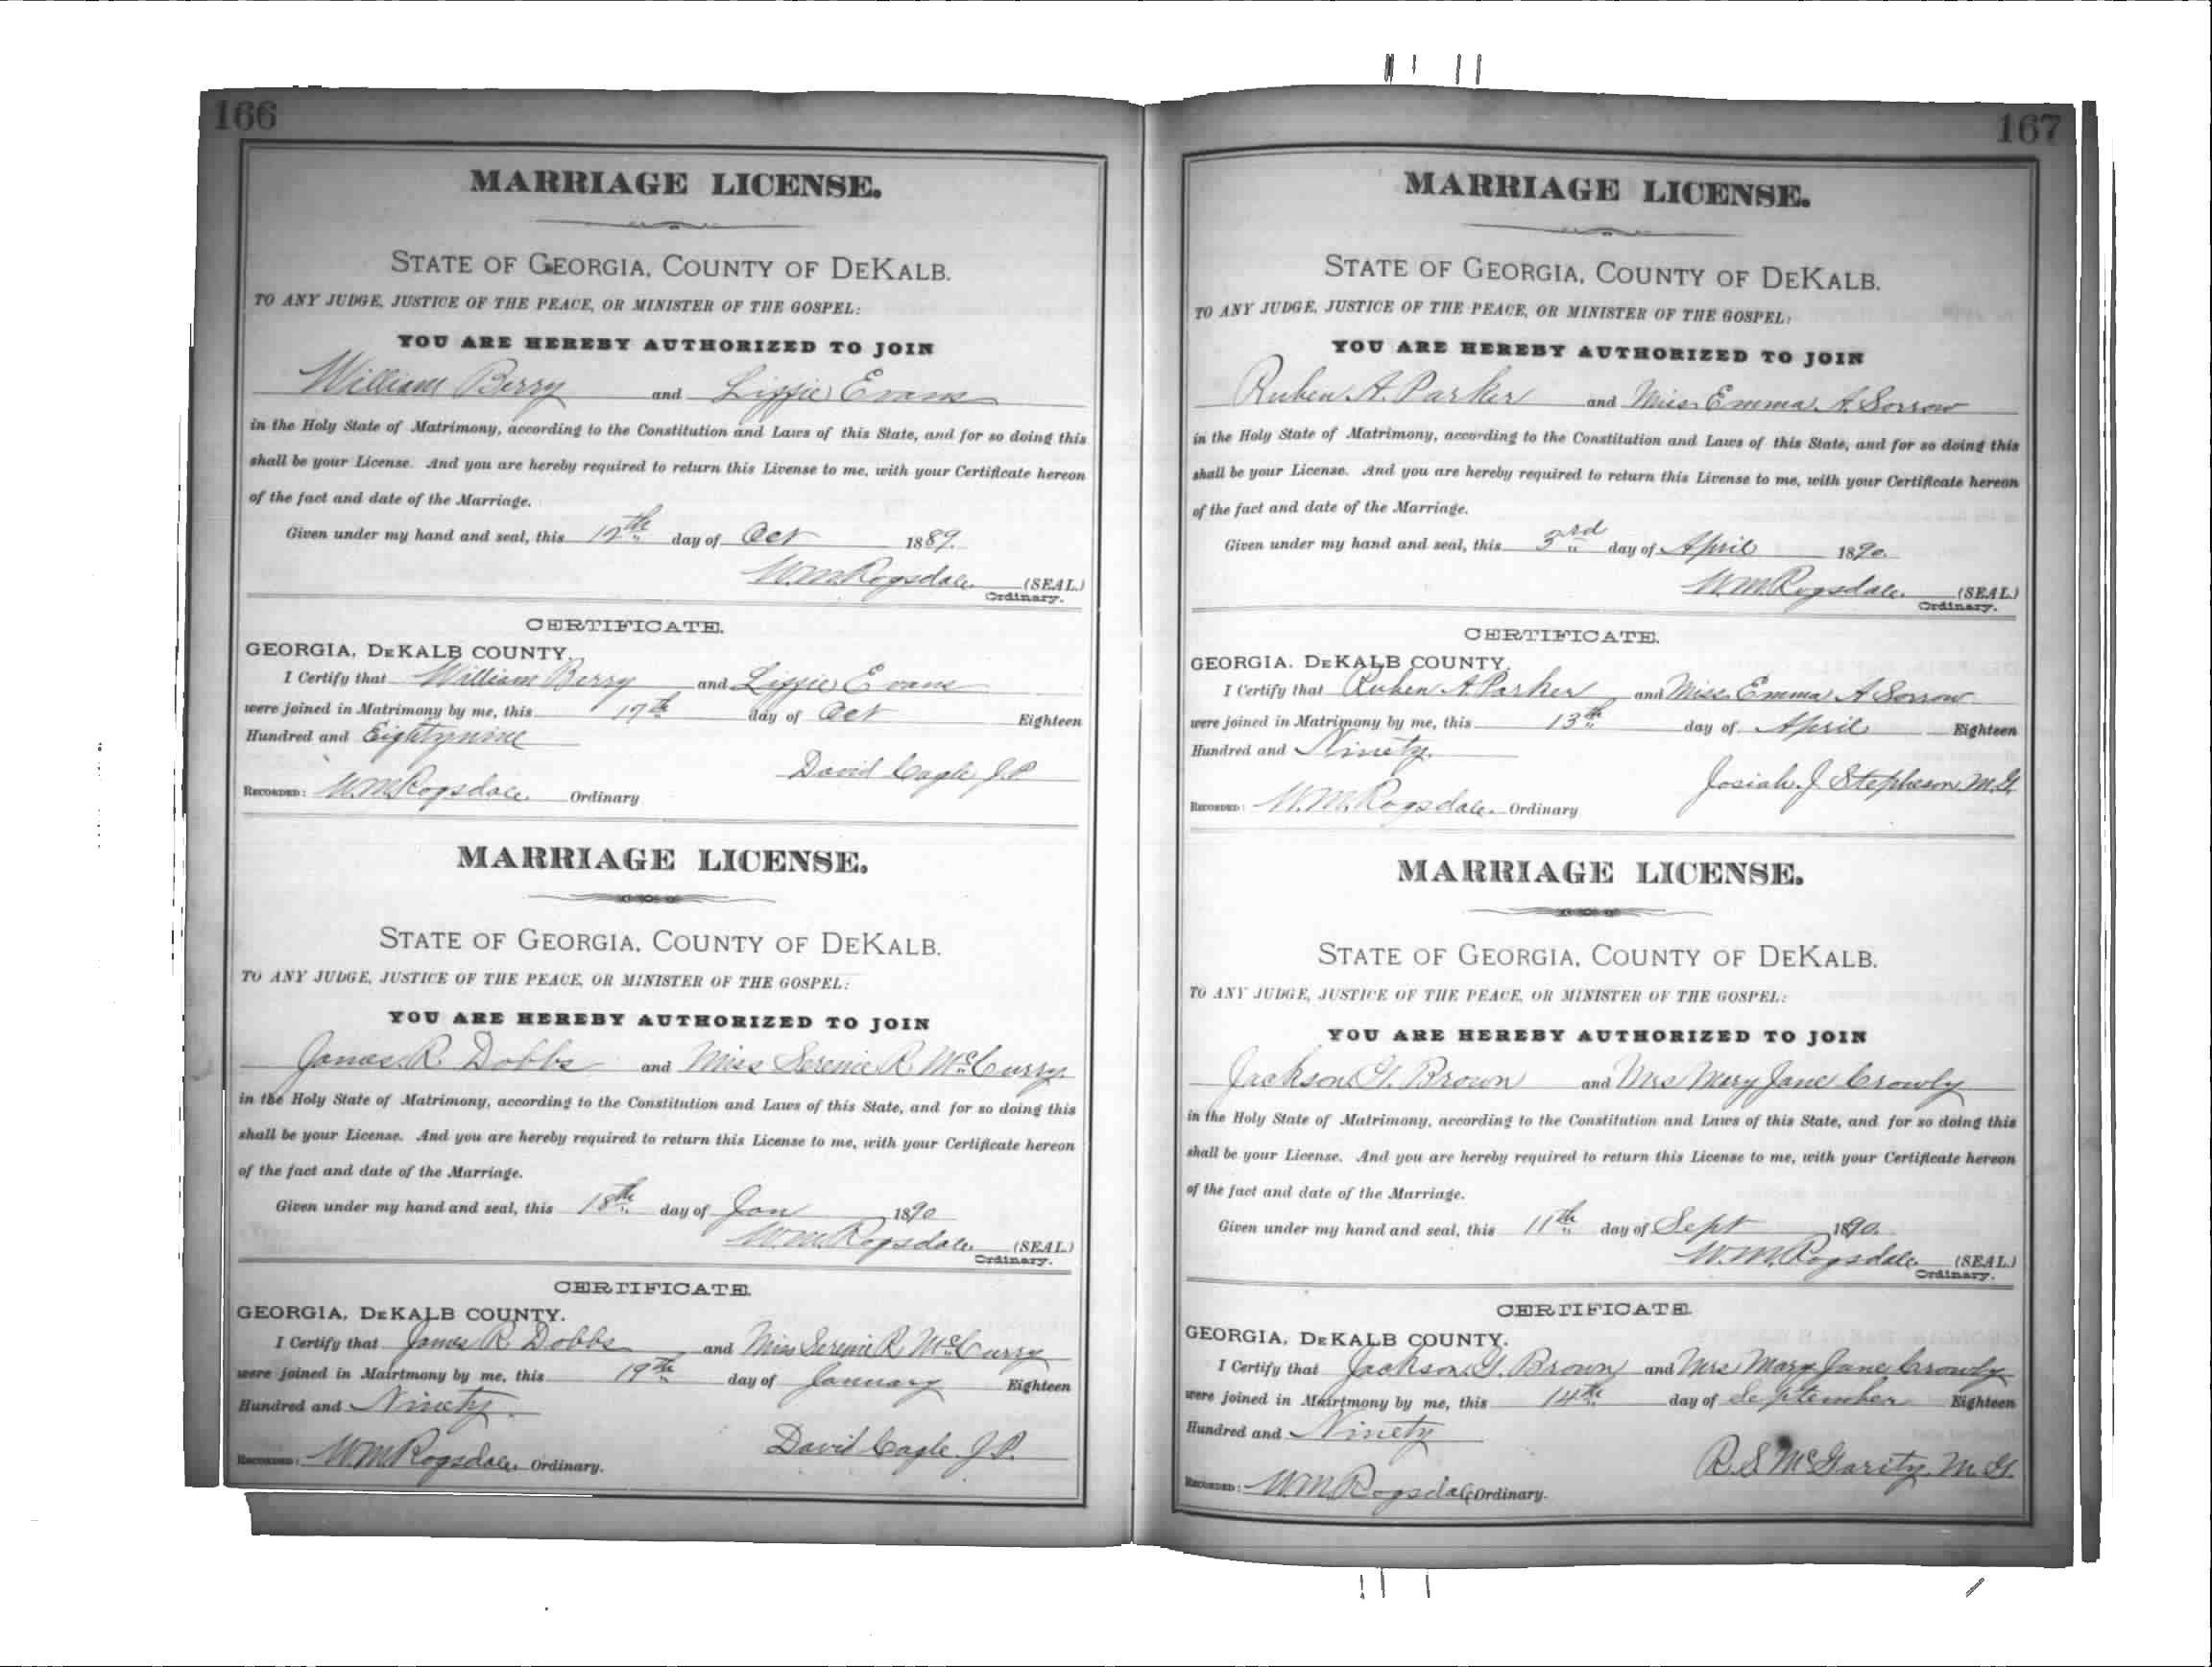 166
MARRIAGE LICENSE.
STATE OF GEORGIA, COUNTY OF DEKALB.
TO ANY JUDGE, JUSTICE OF THE PEACE, OR MINISTER OF THE GOSPEL:
YOU ARE HEREBY AUTHORIZED TO JOIN
William Berry and Lizzie Evans
in the Holy State of Matrimony, according to the Constitution and Laws of this State, and for so doing this
shall be your License. And you are hereby required to return this License to me, with your Certificate hereon
of the fact and date of the Marriage.
Given under my hand and seal, this day of Oct 1889.
W.M. Ragsdale (SEAL)
Ordinary.
CERTIFICATE.
GEORGIA, DEKALB COUNTY.
I Certify that William Berry and Lizzie Evans
were joined in Matrimony by me, this 17th day of Oct Eighteen
Hundred and Eighty nine
David Cagle J.P
RECORDED: W.M. Ragsdale. Ordinary
MARRIAGE LICENSE.
STATE OF GEORGIA, COUNTY OF DEKALB.
TO ANY JUDGE, JUSTICE OF THE PEACE, OR MINISTER OF THE GOSPEL:
YOU ARE HEREBY AUTHORIZED TO JOIN
James R. Dobbs and Miss Serenie R. McCurry
in the Holy State of Matrimony, according to the Constitution and Laws of this State, and for so doing this
shall be your License. And you are hereby required to return this License to me, with your Certificate hereon
of the fact and date of the Marriage.
Given under my hand and seal, this 18th day of Jan 1890
W.M. Ragsdale. (SEAL)
Ordinary.
CERTIFICATE
GEORGIA, DEKALB COUNTY.
I Certify that James R. Dobbs and Miss Serenie R. McCurry
were joined in Mairtmony by me, this 19th day of January Eighteen
Hundred and Ninety.
David Cagle J.P.
RECORDED: W.M. Ragsdale. Ordinary.
167
MARRIAGE LICENSE.
STATE OF GEORGIA, COUNTY OF DEKALB.
TO ANY JUDGE, JUSTICE OF THE PEACE, OR MINISTER OF THE GOSPEL:
YOU ARE HEREBY AUTHORIZED TO JOIN
Ruben A. Parker and Miss. Emma A. Sorrow
in the Holy State of Matrimony, according to the Constitution and Laws of this State, and for so doing this
shall be your License. And you are hereby required to return this License to me, with your Certificate hereon
of the fact and date of the Marriage.
Given under my hand and seal, this 3rd day of April 1890.
W.M. Ragsdale. (SEAL)
Ordinary.
CERTIFICATE.
GEORGIA, DEKALB COUNTY.
I Certify that Ruben A Parker and Miss. Emma A Sorrow
were joined in Matrimony by me, this 13th day of April Eighteen
Hundred and Ninety.
Josiah. J Stephenson M.G.
RECORDED: W.M. Ragsdale. Ordinary
MARRIAGE LICENSE.
STATE OF GEORGIA, COUNTY OF DEKALB.
TO ANY JUDGE, JUSTICE OF THE PEACE, OR MINISTER OF THE GOSPEL:
YOU ARE HEREBY AUTHORIZED TO JOIN
Jackson G. Brown and Mrs Mary Jane Crowly
in the Holy State of Matrimony, according to the Constitution and Laws of this State, and for so doing this
shall be your License. And you are hereby required to return this License to me, with your Certificate hereon
of the fact and date of the Marriage.
Given under my hand and seal, this 11th day of Sept 1890.
W.M. Ragsdale. (SEAL)
Ordinary.
CERTIFICATE
GEORGIA, DEKALB COUNTY.
I Certify that Jackson. G. Brown and Mrs Mary Jane Crowly
were joined in Mairtmony by me, this 14th day of September Eighteen
Hundred and Ninety
R. S. McGarity. M. G.
RECORDED: W.M. Ragsdale Ordinary.